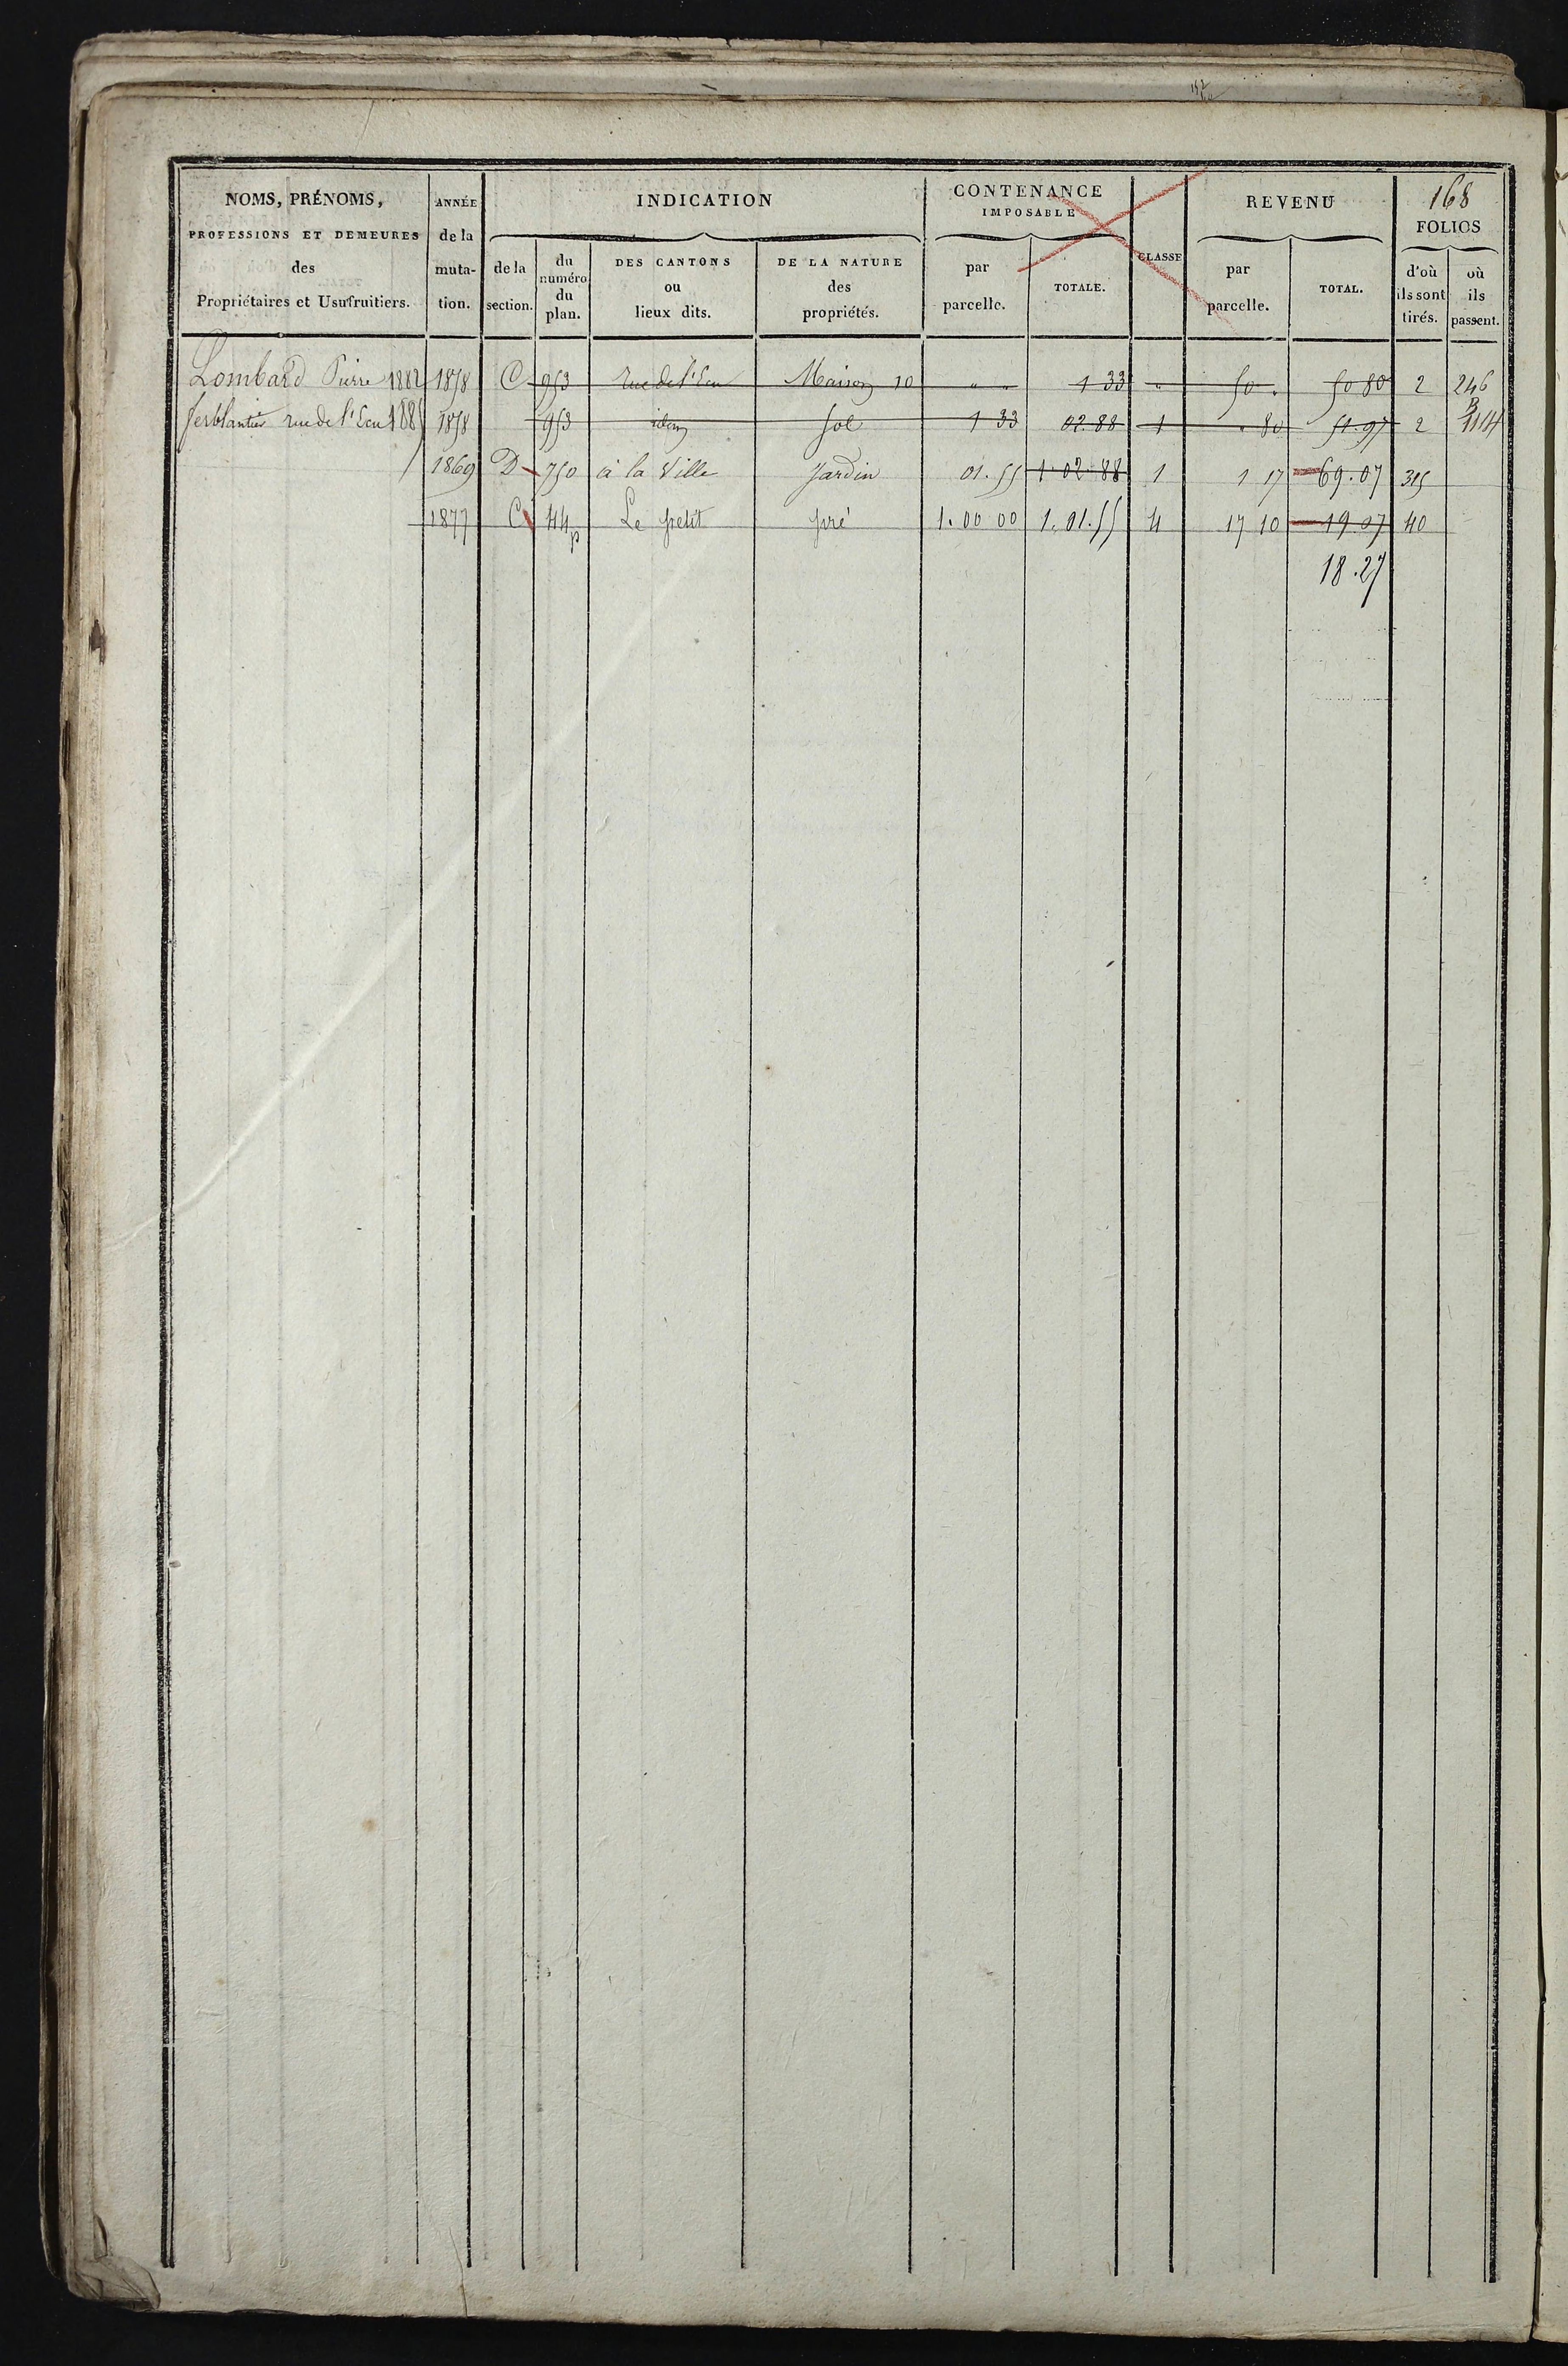 168
NOMS, PRÉNOMS, ANNÉE INDICATION CONTENANCE IMPOSABLE CLASSE REVENU FOLIOS
PROFESSIONS ET DEMEURES de la
des muta- de la du numéro du plan. DES CANTONS ou lieux dits. DE LA NATURE des propriétés. par parcelle. TOTALE. par parcelle. TOTAL. d'où ils sont tirés. où ils passent.
Propriétaires et Usufruitiers. tion. section.
Lombard Pierre 1882 1858 C 953 rue de l'Ecu Maison 10 " " 1 33 " 50 . 50 80 2 246
ferblantier rue de l'Ecu 1885 1858 953 idem sol 1 33 02.88 1 . 80 51.97 2 B 114
1869 D 750 à la Ville Jardin 01.55 1.02.88 1 1 17 69.07 315
1877 C 44 p Le petit pré 1.00 00 1.01.55 4 17 10 19.07 40
18.27